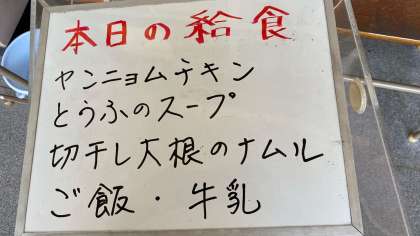 本日の給食
ヤンニョムチキン
とうふのスープ
切干し大根のナムル
ご飯・牛乳